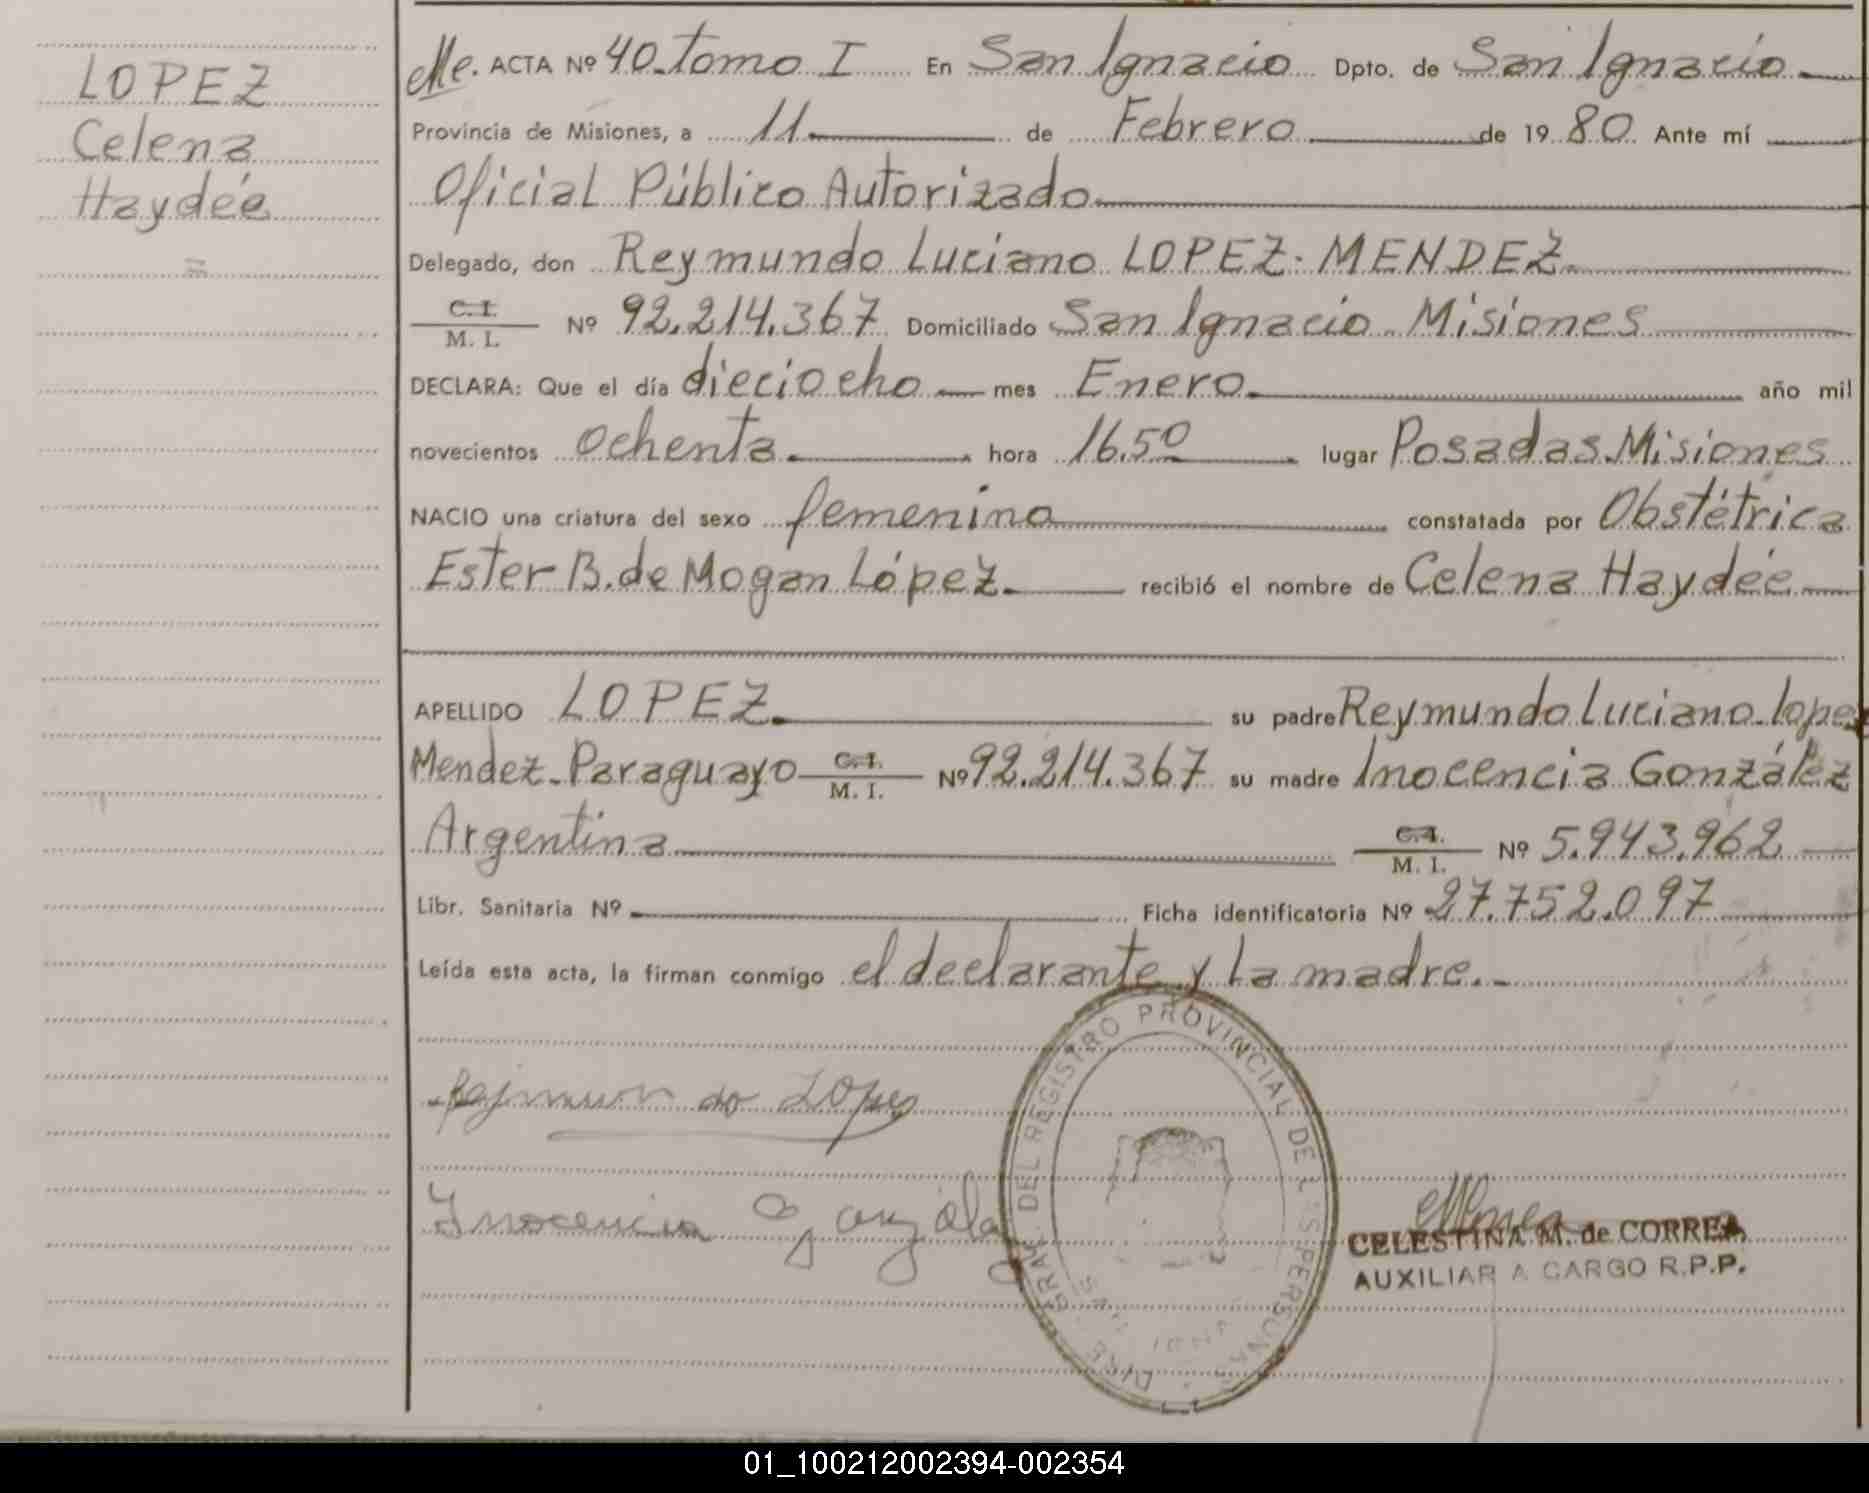 LOPEZ
Celena
Haydée
=
ACTA Nº 40 - tomo I En San Ignacio Dpto. de San Ignacio -
Provincia de Misiones, a 11 de Febrero de 1980 Ante mí
Oficial Público Autorizado
Delegado, don Reymundo Luciano LOPEZ - MENDEZ
C. I. / M. I. Nº 92.214.367 Domiciliado San Ignacio - Misiones
DECLARA: Que el día dieciocho mes Enero año mil
novecientos ochenta hora 16.50 lugar Posadas Misiones
NACIO una criatura del sexo femenino constatada por Obstétrica
Ester B. de Mogan López recibió el nombre de Celena Haydée
APELLIDO LOPEZ su padre Reymundo Luciano lopez
Mendez - Paraguayo C. I. / M. I. Nº 92.214.367 su madre Inocencia González
Argentina C. I. / M. I. Nº 5.943.962
Libr. Sanitaria Nº Ficha identificatoria Nº 27.752.097
Leída esta acta, la firman conmigo el declarante y la madre. -
Rejmundo Lopez
Inocencia Gonzalez
DEL REGISTRO PROVINCIAL DE L'S PERSONAS
CELESTINA M. de CORREA
AUXILIAR A CARGO R.P.P.
01_100212002394-002354